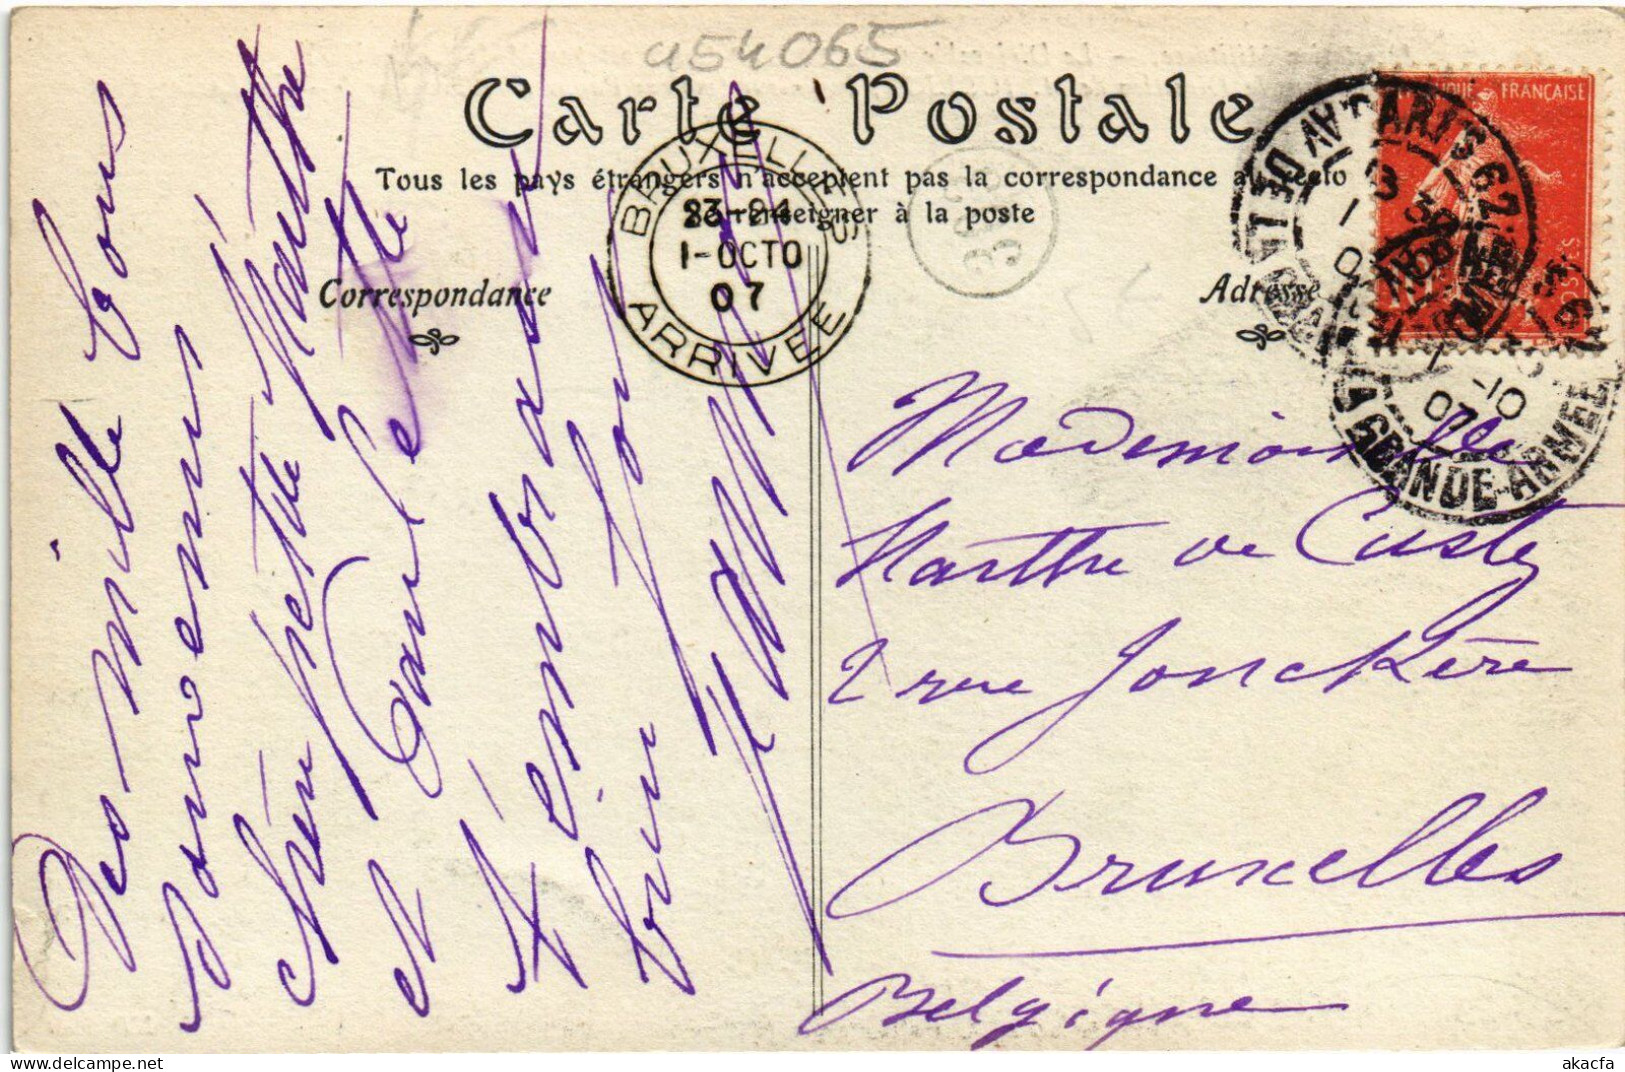 a54065
Carte Postale
Tous les pays étrangers n'acceptent pas la correspondance au recto
Se renseigner à la poste
Correspondance
Adresse
BRUXELLES
23-24
1-OCTO
07
ARRIVEE
PARIS 62
AV. DE LA GRANDE ARMEE
1 -10
07
FRANÇAISE
POSTES
Mademoiselle
Marthe de Custe
2 rue Jonckère
Bruxelles
Belgique
Des mille bons
souvenus
chère petite Marthe
et Paul
t'embrasse
bien fort
akacfa